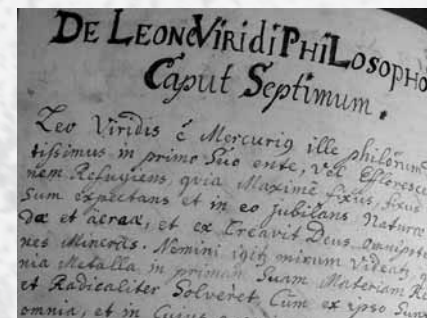 De Leone Viridi Philosopho
Caput Septimum.
Leo Viridis ē Mercuriꝰ ille philorum
tissimus in primo suo ente, vel Effloresce
nem Refugiens, quia Maximè fixus, fixus
Sum expectans et in eo jubilans Naturæ
dæ et aeraæ, et ex Creavit Deus omnipote
nes Minoris. Nemini igitꝛ mirum Videatꝛ q
nia Metalla in primam Suam Materiam Re
et Radicaliter Solveret, Cum ex ipso Sum
omnia, et in